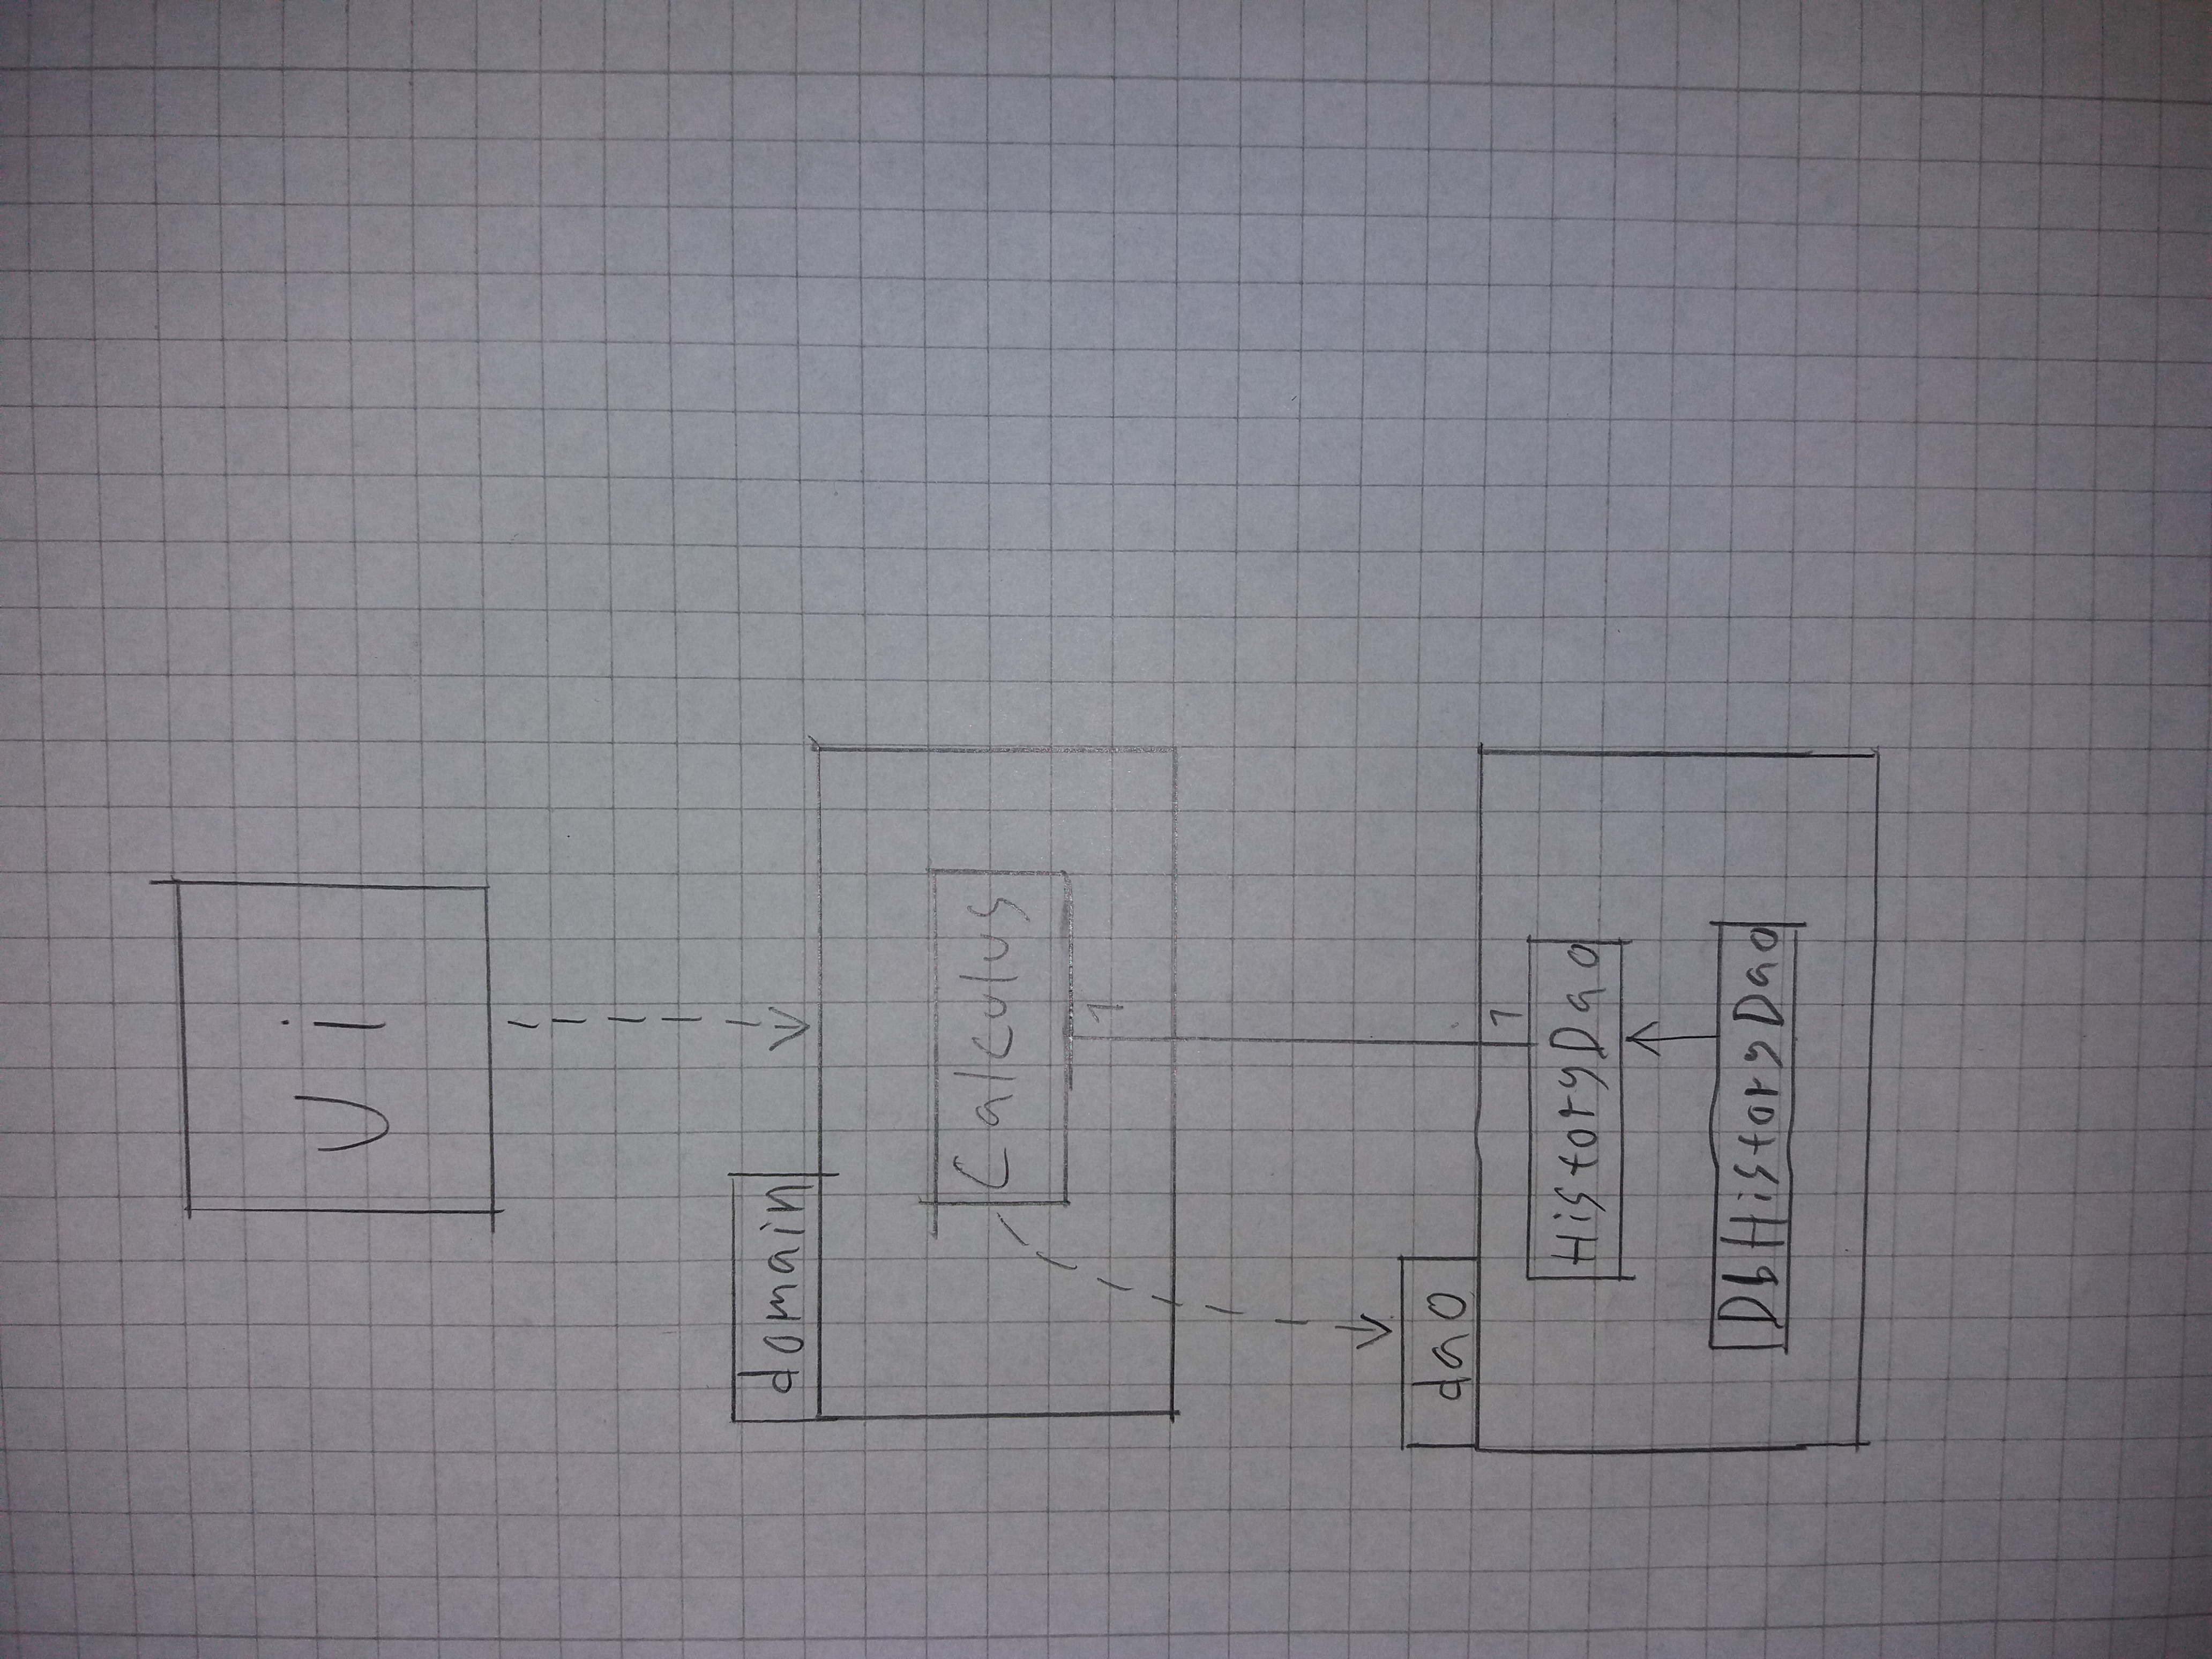 Ui
domain
Calculus
1
dao
1
HistoryDao
DbHistoryDao